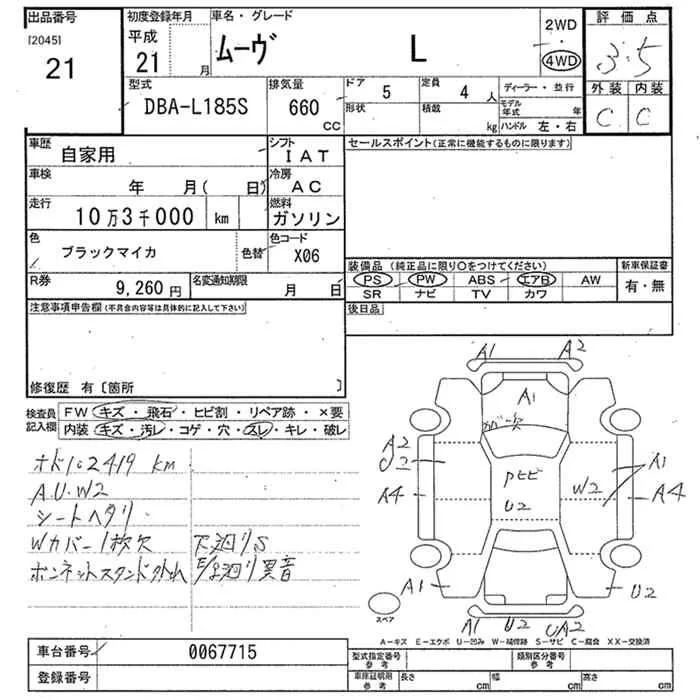 出品番号
[2045]
21
初度登録年月
平成
21
月
車名・グレード
ムーヴ
L
2WD
・
4WD
評価点
3.5
外装 内装
C C
型式
DBA-L185S
排気量
660
CC
ドア
5
定員
4人
形状
積載
kg
ディーラー・並行
モデル
年式
ハンドル 左・右
車歴
自家用
シフト
IAT
車検
年 月( 日)
冷房
AC
走行
10万3千000
km
燃料
ガソリン
色
ブラックマイカ
色替
色コード
X06
R券
9,260円
名変通知期限
月 日
セールスポイント(正常に機能するものに限ります)
装備品(純正品に限り○をつけてください)
PS PW ABS エアB AW
SR ナビ TV カワ
新車保証書
有・無
後日品
注意事項申告欄(不具合内容等は具体的に記入して下さい)
修復歴 有〔箇所 〕
検査員
記入欄
FW キズ・飛石・ヒビ割・リペア跡・×要
内装 キズ・汚レ・コゲ・穴・スレ・キレ・破レ
オドlo2419 km
A.U.W2
シートヘタリ
Wカバー1枚欠
下廻りS
ボンネットスタンド外れ
異音
A1 A2
A1
カバー欠
A2
U2
A4
Pヒビ
U2
W2
A1
A4
A1
U2
スペア
A1 U2 UA2
A-キズ E-エクボ U-凹み W-補修跡 S-サビ C-腐食 XX-交換済
車台番号
0067715
登録番号
型式指定番号
参考
類別区分番号
参考
車庫証明用
参考
長さ
cm
幅
cm
高さ
cm